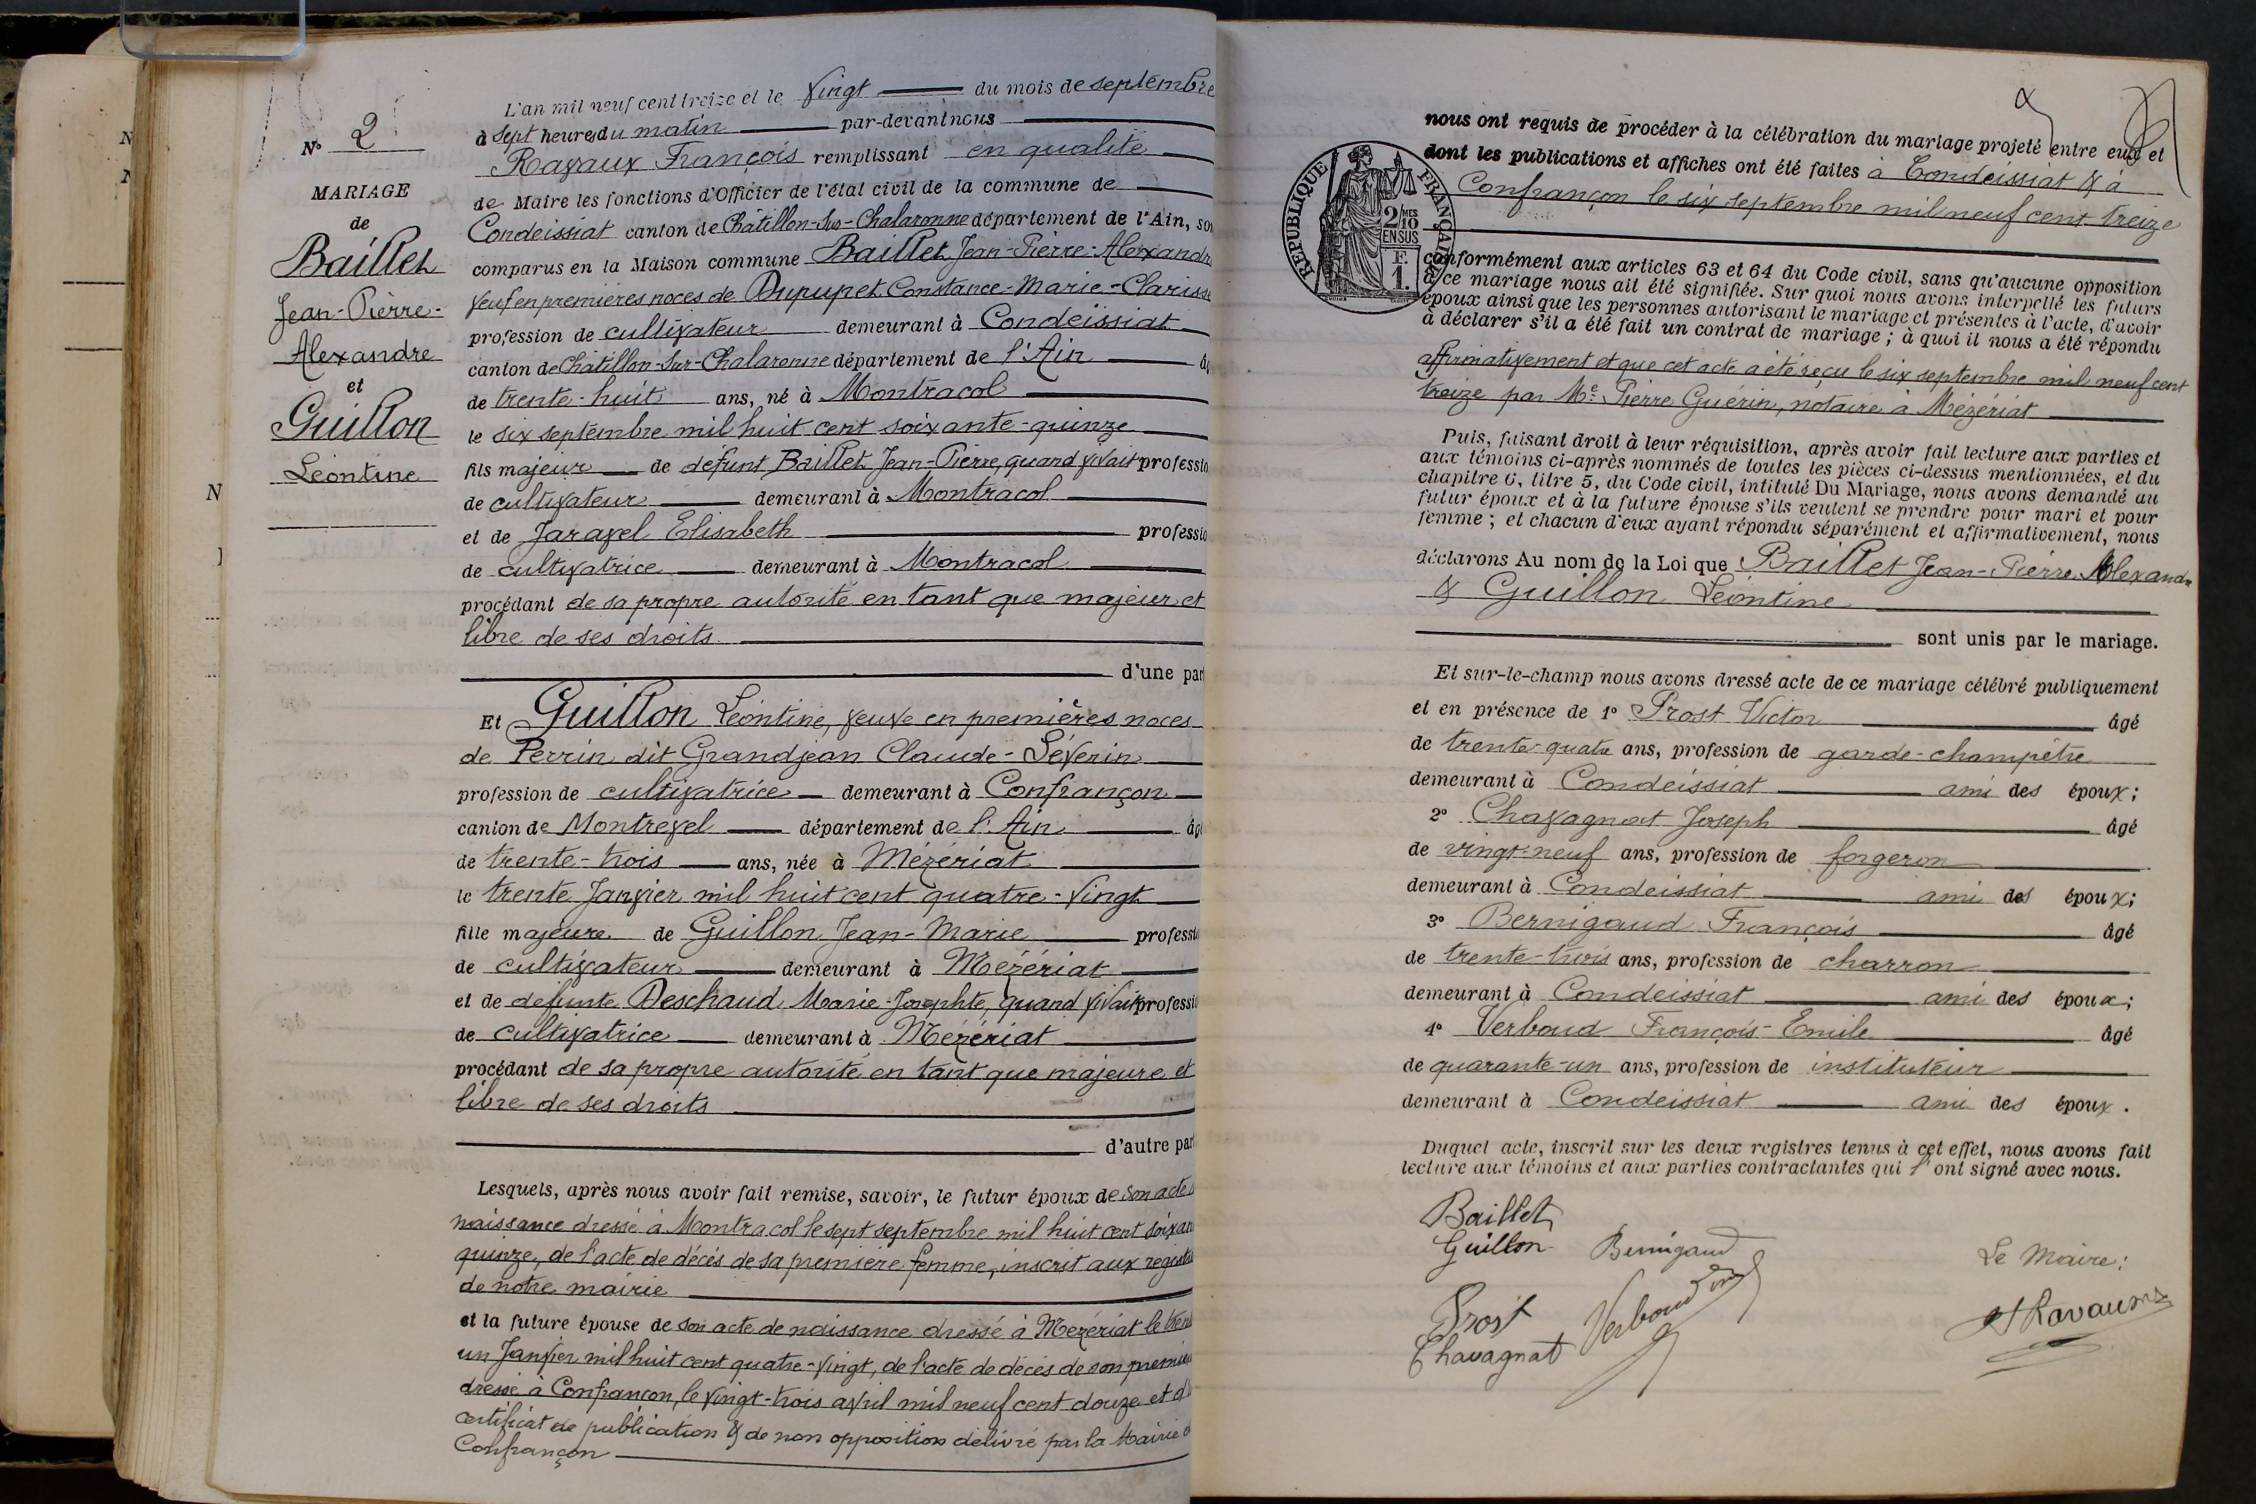 N° 2
MARIAGE
de
Baillet
Jean-Pierre-
Alexandre
et
Guillon
Léontine
L'an mil neuf cent treize et le vingt du mois de septembre
à sept heures du matin par-devant nous
Ravaux François remplissant en qualité
de Maire les fonctions d'Officier de l'état civil de la commune de
Condeissiat canton de Châtillon-sur-Chalaronne département de l'Ain, so
comparus en la Maison commune Baillet Jean-Pierre-Alexandr
veuf en premières noces de Dupupet Constance-Marie-Clarisse
profession de cultivateur demeurant à Condeissiat
canton de Châtillon-sur-Chalaronne département de l'Ain âg
de trente-huit ans, né à Montracol
le six septembre mil huit cent soixante-quinze
fils majeur de défunt Baillet Jean-Pierre, quand vivait professio
de cultivateur demeurant à Montracol
et de Jaravel Elisabeth professio
de cultivatrice demeurant à Montracol
procédant de sa propre autorité en tant que majeur et
libre de ses droits
d'une par
Et Guillon Léontine, veuve en premières noces
de Perrin dit Grandjean Claude-Séverin
profession de cultivatrice demeurant à Confrançon
canton de Montrevel département de l'Ain âg
de trente-trois ans, née à Mézériat
le trente Janvier mil huit cent quatre-vingt
fille majeure de Guillon Jean-Marie professio
de cultivateur demeurant à Mézériat
et de défunte Deschaud Marie-Josephte, quand vivait professio
de cultivatrice demeurant à Mézériat
procédant de sa propre autorité en tant que majeure et
libre de ses droits
d'autre par
Lesquels, après nous avoir fait remise, savoir, le futur époux de son acte d
naissance dressé à Montracol le sept septembre mil huit cent soixan
quinze, de l'acte de décès de sa première femme, inscrit aux registre
de notre mairie
et la future épouse de son acte de naissance dressé à Mézériat le trente
un Janvier mil huit cent quatre-vingt, de l'acte de décès de son premier
dressé à Confrançon, le vingt-trois avril mil neuf cent douze et d'
certificat de publication & de non opposition délivré par la Mairie d
Confrançon
nous ont requis de procéder à la célébration du mariage projeté entre eux et
dont les publications et affiches ont été faites à Condeissiat & à
Confrançon le six septembre mil neuf cent treize
RÉPUBLIQUE FRANÇAISE
2/10 MES
EN SUS
F.
1.
conformément aux articles 63 et 64 du Code civil, sans qu'aucune opposition
à ce mariage nous ait été signifiée. Sur quoi nous avons interpellé les futurs
époux ainsi que les personnes autorisant le mariage et présentes à l'acte, d'avoir
à déclarer s'il a été fait un contrat de mariage ; à quoi il nous a été répondu
affirmativement et que cet acte a été reçu le six septembre mil neuf cent
treize par Me Pierre Guérin, notaire à Mézériat
Puis, faisant droit à leur réquisition, après avoir fait lecture aux parties et
aux témoins ci-après nommés de toutes les pièces ci-dessus mentionnées, et du
chapitre 6, titre 5, du Code civil, intitulé Du Mariage, nous avons demandé au
futur époux et à la future épouse s'ils veulent se prendre pour mari et pour
femme ; et chacun d'eux ayant répondu séparément et affirmativement, nous
déclarons Au nom de la Loi que Baillet Jean-Pierre Alexandre
& Guillon Léontine
sont unis par le mariage.
Et sur-le-champ nous avons dressé acte de ce mariage célébré publiquement
et en présence de 1° Prost Victor âgé
de trente-quatre ans, profession de garde-champêtre
demeurant à Condeissiat ami des époux ;
2° Chavagnat Joseph âgé
de vingt-neuf ans, profession de forgeron
demeurant à Condeissiat ami des époux ;
3° Bernigaud François âgé
de trente-trois ans, profession de charron
demeurant à Condeissiat ami des époux ;
4° Verboud François-Emile âgé
de quarante-un ans, profession de instituteur
demeurant à Condeissiat ami des époux.
Duquel acte, inscrit sur les deux registres tenus à cet effet, nous avons fait
lecture aux témoins et aux parties contractantes qui l'ont signé avec nous.
Baillet
Guillon Bernigaud
Le Maire :
Prost Verboud
Ravaux
Chavagnat